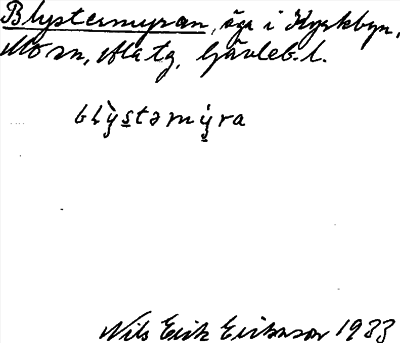 Blystermyran, äga i Kyrkbyn,
Mo sn, Gävleb. l.
blỳs̲təmý̲ra
Nils Erik Eriksson 1933